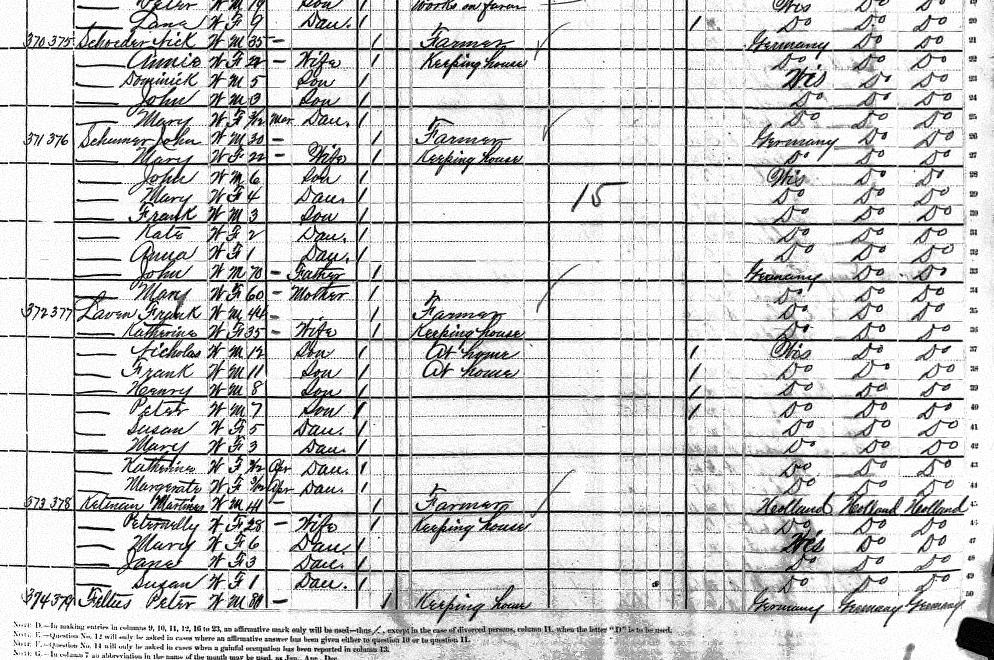 Peter W M 19 Son 1 Works on farm Wis Do Do
Lana W F 9 Dau. 1 1 Do Do Do 20
370 375 Schroeder Nick W M 35 - 1 Farmer Germany Do Do 21
Annie W F 22 - Wife 1 Keeping house Do Do Do 22
Dominick W M 5 Son 1 Wis Do Do 23
John W M 3 Son 1 Do Do Do 24
Mary W F 3/12 Mar Dau. 1 Do Do Do 25
371 376 Schumer John W M 30 - 1 Farmer Germany Do Do 26
Mary W F 22 - Wife 1 Keeping house Do Do Do 27
John W M 6 Son 1 Wis Do Do 28
Mary W F 4 Dau. 1 15 Do Do Do 29
Frank W M 3 Son 1 Do Do Do 30
Kate W F 2 Dau. 1 Do Do Do 31
Anna W F 1 Dau. 1 Do Do Do 32
John W M 70 - Father 1 Germany Do Do 33
Mary W F 60 - Mother 1 Do Do Do 34
372 377 Laven Frank W M 44 - 1 Farmer Do Do Do 35
Katherine W F 35 - Wife 1 Keeping house Do Do Do 36
Nicholas W M 12 Son 1 At home 1 Wis Do Do 37
Frank W M 11 Son 1 At house 1 Do Do Do 38
Henry W M 8 Son 1 1 Do Do Do 39
Peter W M 7 Son 1 1 Do Do Do 40
Susan W F 5 Dau. 1 Do Do Do 41
Mary W F 3 Dau. 1 Do Do Do 42
Katherine W F 2/12 Apr Dau. 1 Do Do Do 43
Margerate W F 2/12 Apr Dau. 1 Do Do Do 44
373 378 Ketman Martines W M 41 - 1 Farmer Holland Holland Holland 45
Peternelly W F 28 - Wife 1 Keeping house Do Do Do 46
Mary W F 6 Dau. 1 Wis Do Do 47
Jane W F 3 Dau. 1 Do Do Do 48
Susan W F 1 Dau. 1 Do Do Do 49
374 379 Filties Peter W M 80 - 1 Keeping house Germany Germany Germany 50
NOTE D.—In making entries in columns 9, 10, 11, 12, 16 to 23, an affirmative mark only will be used—thus /, except in the case of divorced persons, column 11, when the letter "D" is to be used.
NOTE E.—Question No. 12 will only be asked in cases where an affirmative answer has been given either to question 10 or to question 11.
NOTE F.—Question No. 14 will only be asked in cases when a gainful occupation has been reported in column 13.
NOTE G.—In column 7 an abbreviation in the name of the month may be used, as Jan., Apr., Dec.